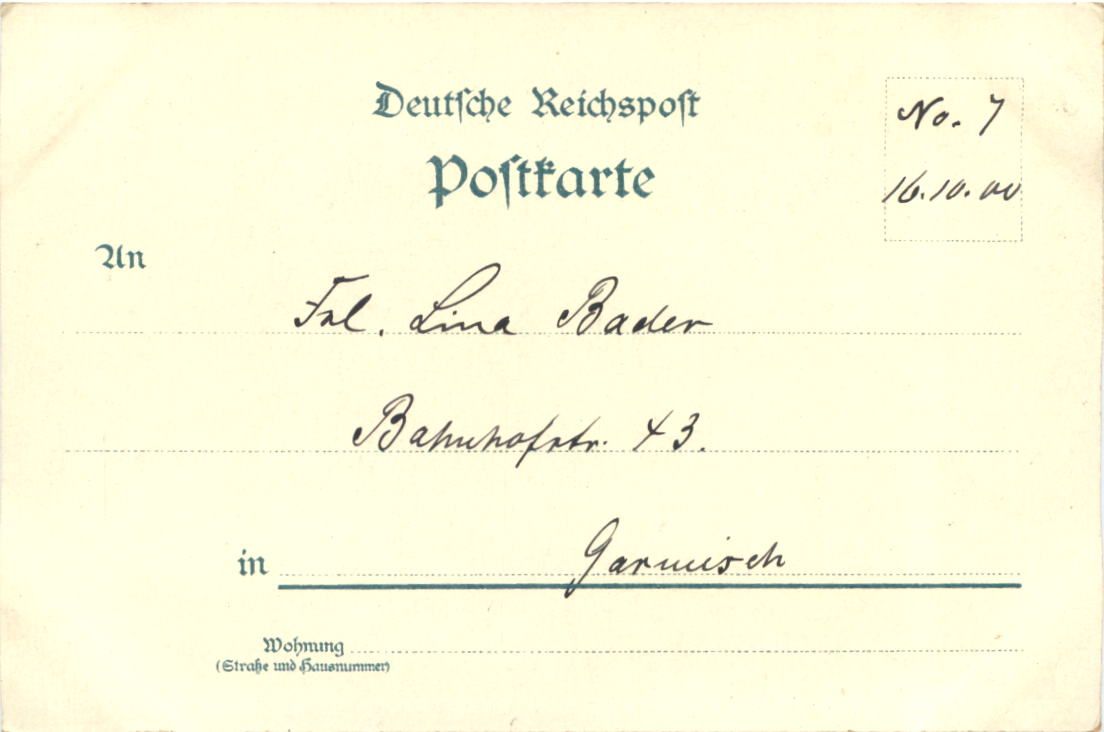 Deutsche Reichspost
Postkarte
No. 7
16.10.00
An
Frl. Lina Bader
Bahnhofstr. 43.
in Garmisch
Wohnung
(Straße und Hausnummer)